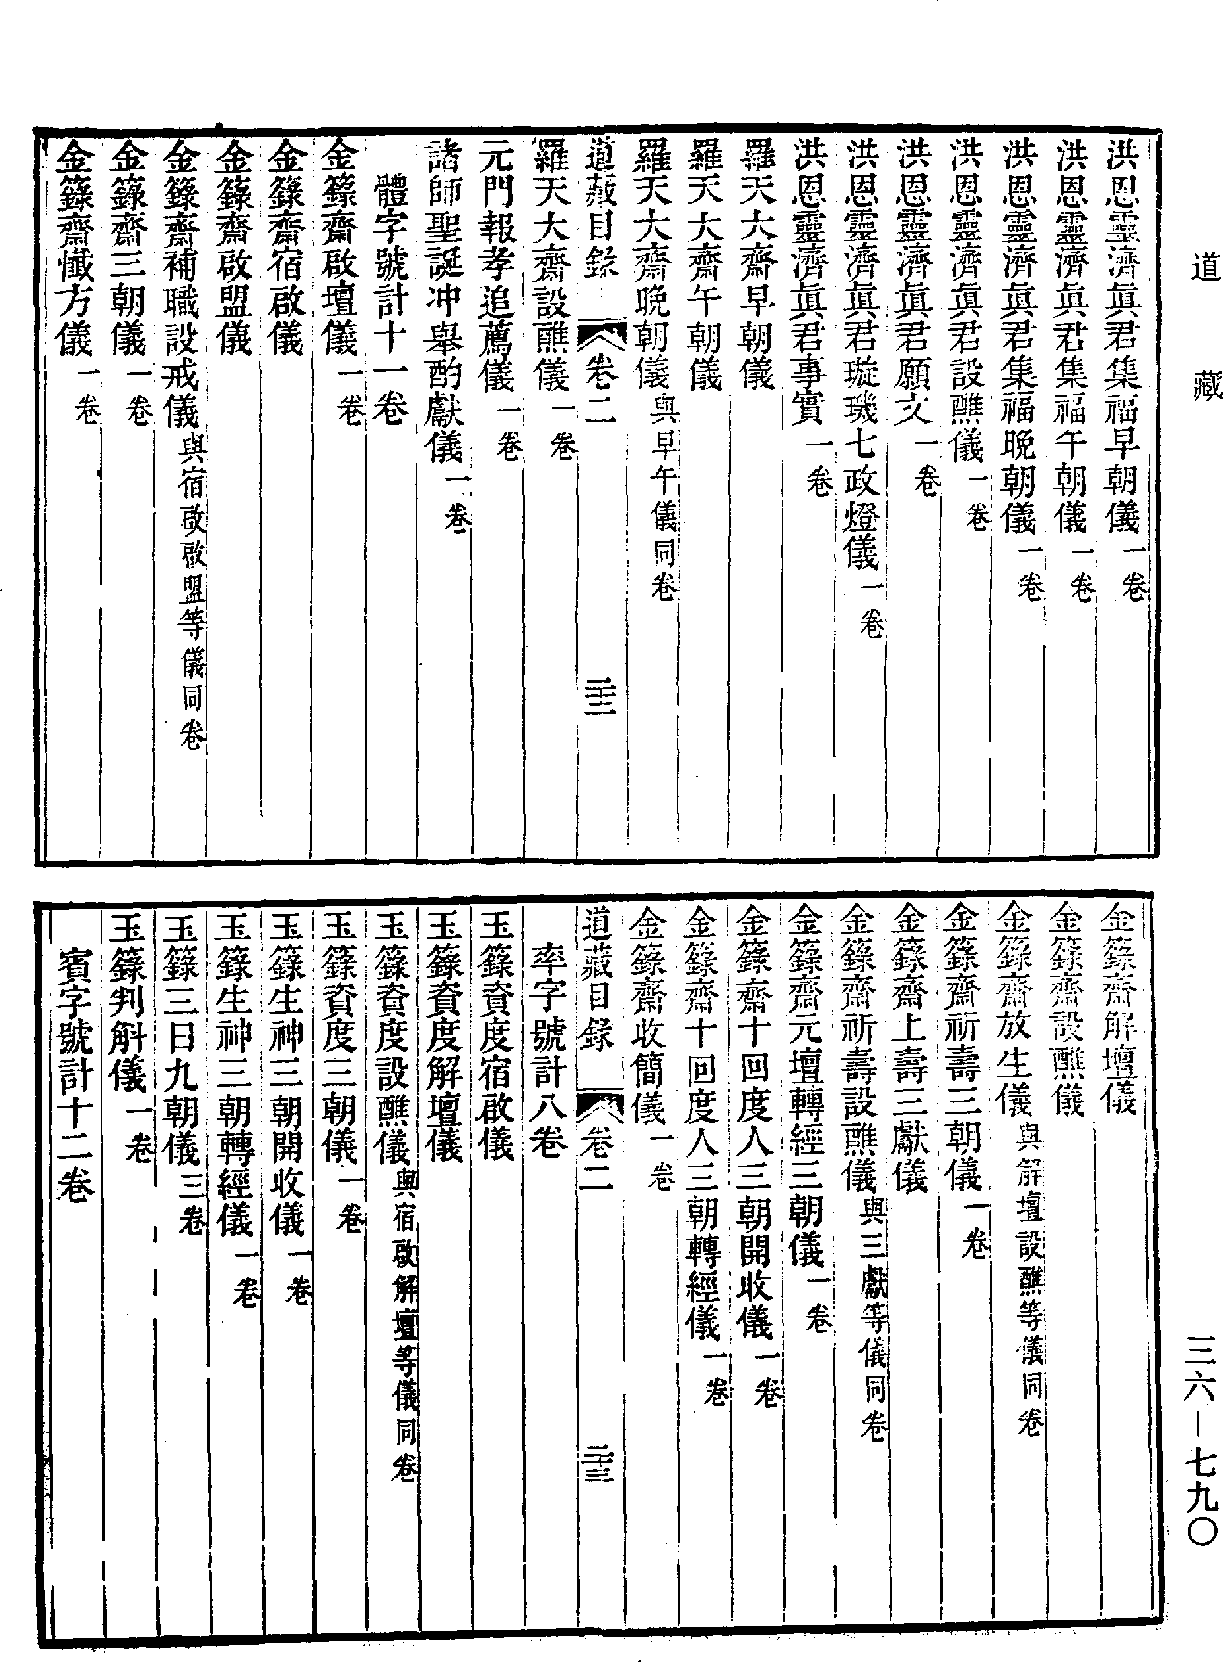 道藏
洪恩靈濟眞君集福早朝儀一卷
洪恩靈濟眞君集福午朝儀一卷
洪恩靈濟眞君集福晚朝儀一卷
洪恩靈濟眞君設醮儀一卷
洪恩靈濟眞君願文一卷
洪恩靈濟眞君璇璣七政燈儀一卷
洪恩靈濟眞君事實一卷
羅天大齋早朝儀
羅天大齋午朝儀
羅天大齋晚朝儀與早午儀同卷
道藏目錄 卷二 二十二
羅天大齋設醮儀一卷
元門報孝追薦儀一卷
諸師聖誕冲舉酌獻儀一卷
體字號計十一卷
金籙齋啟壇儀一卷
金籙齋宿啟儀
金籙齋啟盟儀
金籙齋補職設戒儀與宿啟啟盟等儀同卷
金籙齋三朝儀一卷
金籙齋懺方儀一卷
金籙齋解壇儀
金籙齋設醮儀
金籙齋放生儀與解壇設醮等儀同卷
金籙齋祈壽三朝儀一卷
金籙齋上壽三獻儀
金籙齋祈壽設醮儀與三獻等儀同卷
金籙齋元壇轉經三朝儀一卷
金籙齋十回度人三朝開收儀一卷
金籙齋十回度人三朝轉經儀一卷
金籙齋收簡儀一卷
道藏目錄 卷二 二十三
率字號計八卷
玉籙資度宿啟儀
玉籙資度解壇儀
玉籙資度設醮儀與宿啟解壇等儀同卷
玉籙資度三朝儀一卷
玉籙生神三朝開收儀一卷
玉籙生神三朝轉經儀一卷
玉籙三日九朝儀三卷
玉籙判斛儀一卷
賓字號計十二卷
三六-七九〇